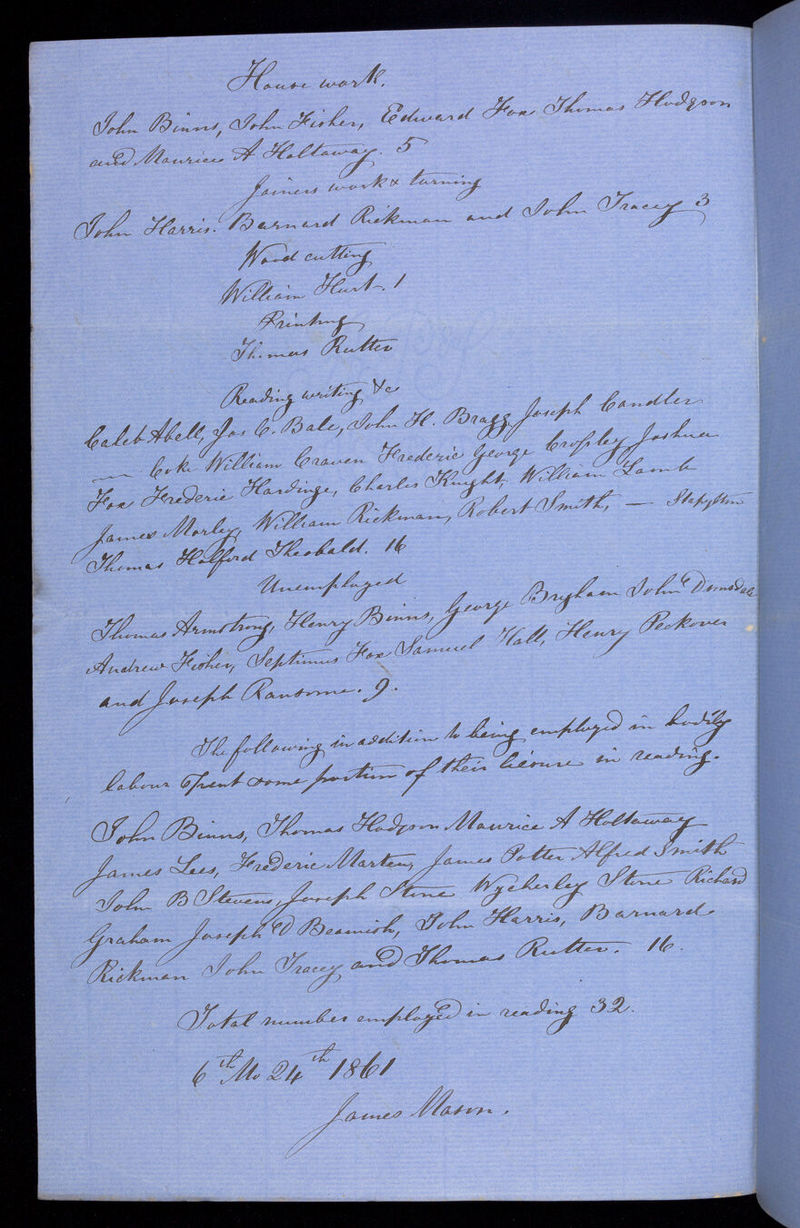 House work.
John Binns, John Fisher, Edward Fox Thomas Hodgson
and Maurice A Holtaway. 5
Joiners work & turning
John Harris. Barnard Rickman and John Tracey 3
Wood cutting
William Hurt. 1
Printing
Thomas Rutter
Reading writing &c
Caleb Abell, Jas C. Bale, John H. Bragg Joseph Candler
— Coke William Craven Frederic George Crossley Joshua
Fox Frederic Hardinge, Charles Knight, William Lamb
James Morley, William Rickman, Robert Smith, — Stapylton
Thomas Holford Theobald. 16
Unemployed
Thomas Armstrong, Henry Binns, George Brigham John Dimsdale
Andrew Fisher, Septimus Fox Samuel Hall, Henry Peckover
and Joseph Ransome. 9.
The following in addition to being employed in bodily
labour spent some portion of their liesure in reading.
John Binns, Thomas Hodgson Maurice A Holtaway
James Lees, Frederic Marten, James Potter Alfred Smith
John B Stevens, Joseph Stone Wycherley Stone Richard
Graham Joseph D Beamish, John Harris, Barnard
Rickman John Tracey and Thomas Rutter. 16.
Total number employed in reading 32.
6th Mo 24th 1861
James Mason.